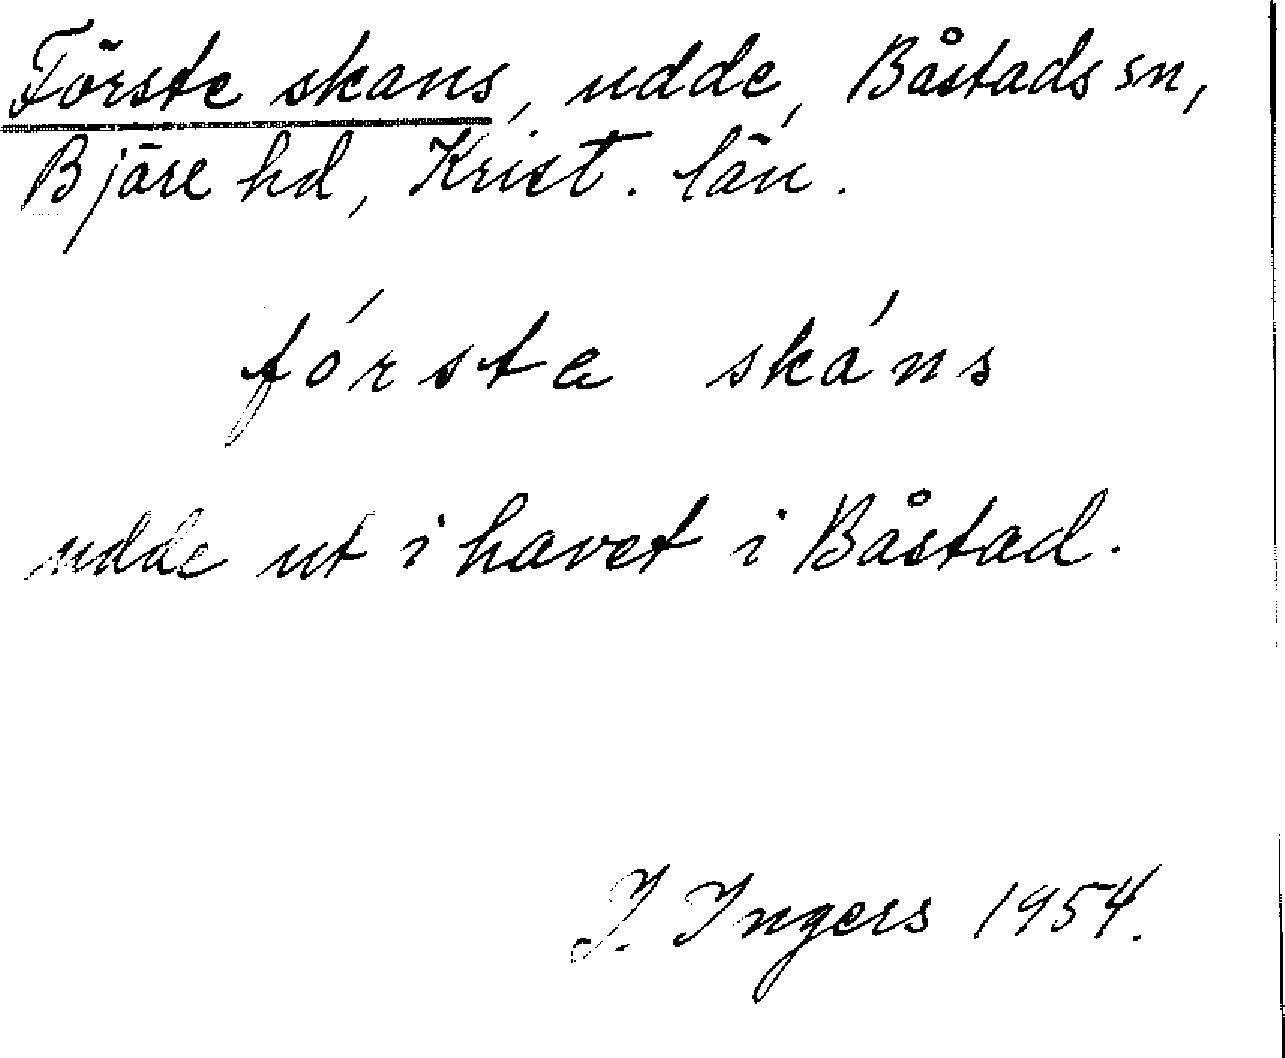 Förste skans, udde, Båstads sn,
Bjäre hd, Krist. län.
fórsta skáns
udde ut i havet i Båstad.
J. Ingers 1954.